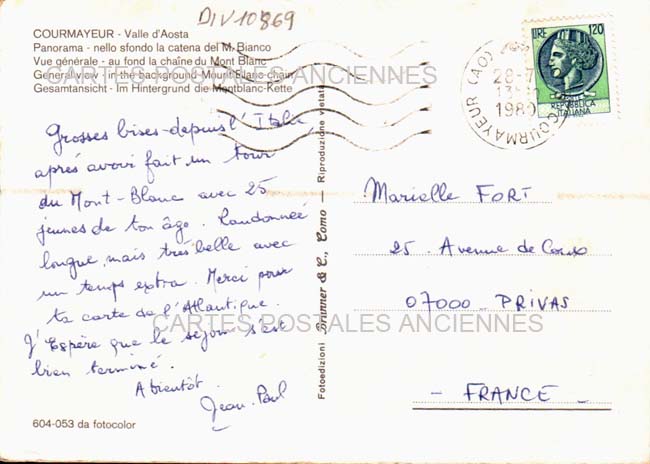 DIV10869
COURMAYEUR - Valle d'Aosta
Panorama - nello sfondo la catena del M. Bianco
Vue générale - au fond la chaîne du Mont Blanc
General view - in the background Mount Blanc chain
Gesamtansicht - Im Hintergrund die Montblanc-Kette
CARTES POSTALES ANCIENNES
Grosses bises depuis l'Italie,
après avoir fait un tour
du Mont-Blanc avec 25
jeunes de ton âge. Randonnée
longue, mais très belle avec
un temps extra. Merci pour
ta carte de l'Atlantique.
J'Espère que le séjour s'est
bien terminé.
A bientôt.
Jean-Paul
604-053 da fotocolor
Fotoedizioni Brunner & C., Como - Riproduzione vietata
COURMAYEUR (AO)
28-7
1980
COURMAYEUR
LIRE 120
REPUBBLICA
ITALIANA
Marielle FORT
25 Avenue de
07000 - PRIVAS
CARTES POSTALES ANCIENNES
- FRANCE -